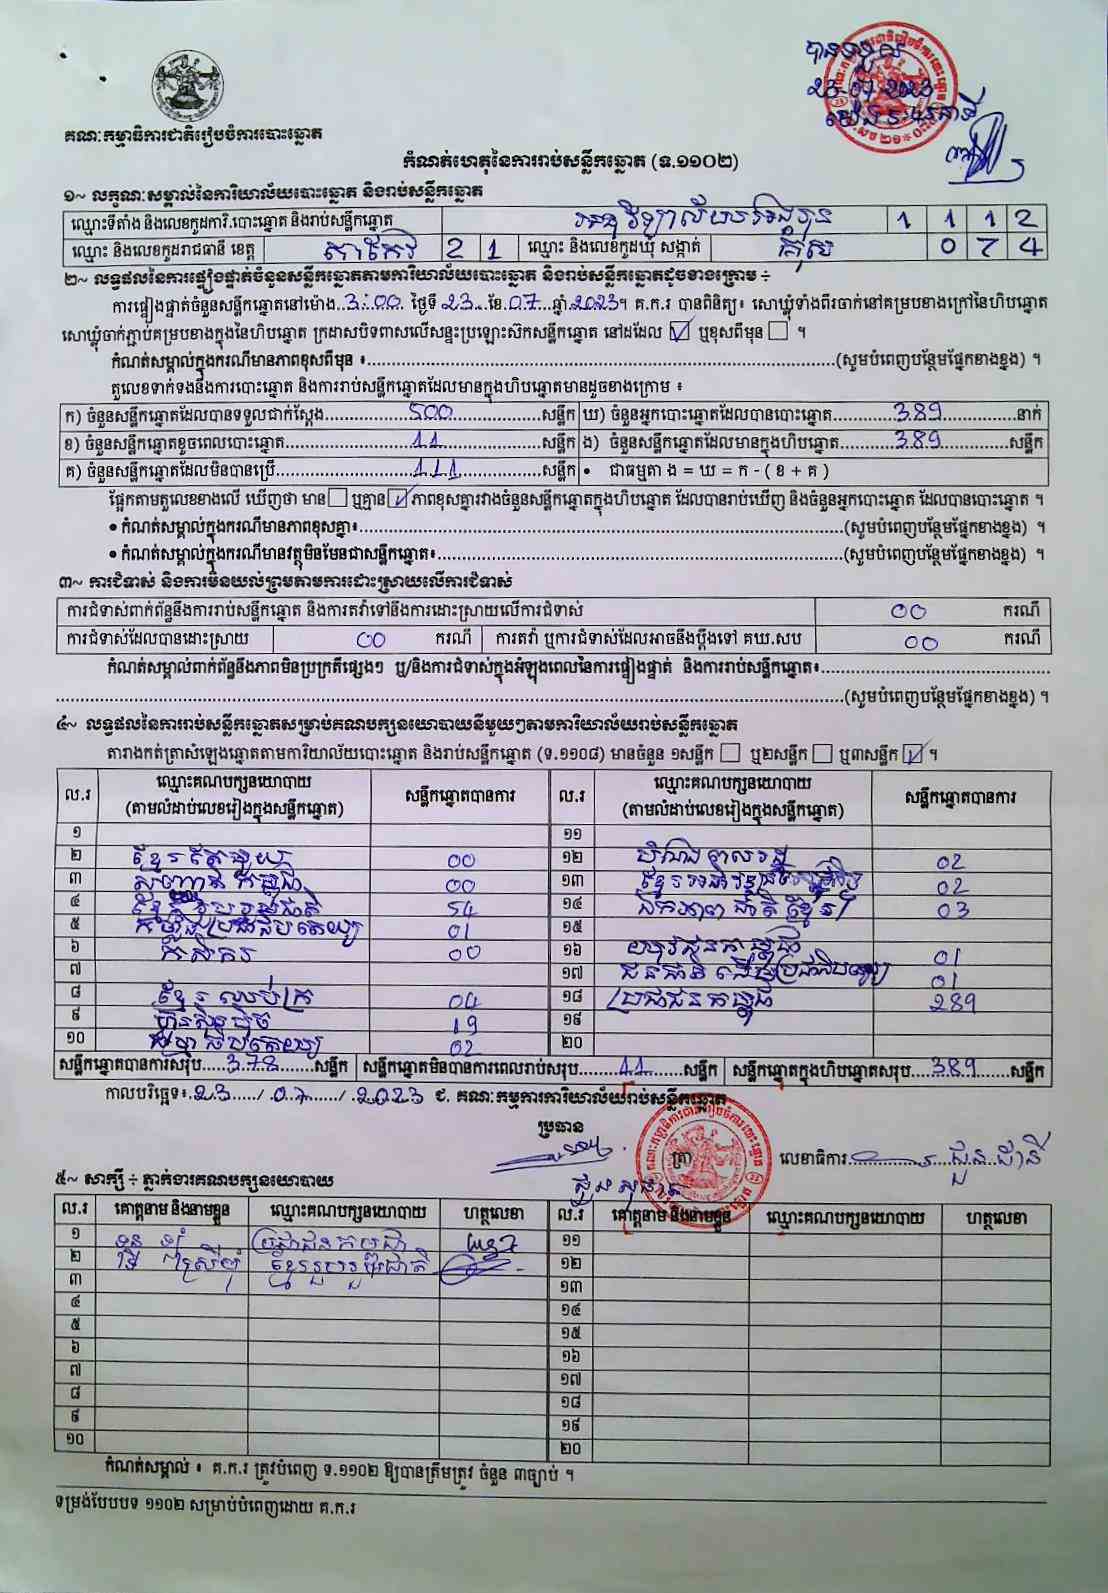 បានទទួល
23-07-2023
គណៈកម្មាធិការជាតិរៀបចំការបោះឆ្នោត
កំណត់ហេតុនៃការរាប់សន្លឹកឆ្នោត (ទ.១១០២)
១~ លក្ខណៈសម្គាល់នៃការិយាល័យបោះឆ្នោត និងរាប់សន្លឹកឆ្នោត
ឈ្មោះទីតាំង និងលេខកូដការិ.បោះឆ្នោត និងរាប់សន្លឹកឆ្នោត 1 1 1 2
ឈ្មោះ និងលេខកូដរាជធានី ខេត្ត តាកែវ 2 1 ឈ្មោះ និងលេខកូដឃុំ សង្កាត់ គុស 0 7 4
២~ លទ្ធផលនៃការផ្ទៀងផ្ទាត់ចំនួនសន្លឹកឆ្នោតតាមការិយាល័យបោះឆ្នោត និងរាប់សន្លឹកឆ្នោតដូចខាងក្រោម ÷
ការផ្ទៀងផ្ទាត់ចំនួនសន្លឹកឆ្នោតនៅម៉ោង 3:00 ថ្ងៃទី 23 ខែ 07 ឆ្នាំ 2023។ គ.ក.រ បានពិនិត្យ៖ សោឃ្លុំទាំងពីរចាក់នៅគម្របខាងក្រៅនៃហិបឆ្នោត
សោឃ្លុំចាក់ភ្ជាប់គម្របខាងក្នុងនៃហិបឆ្នោត ក្រដាសបិទពាសលើសន្ទះប្រឡោះស៊កសន្លឹកឆ្នោត នៅដដែល ☑ ឬខុសពីមុន ☐ ។
កំណត់សម្គាល់ក្នុងករណីមានភាពខុសពីមុន ៖ (សូមបំពេញបន្ថែមផ្នែកខាងខ្នង) ។
តួលេខទាក់ទងនឹងការបោះឆ្នោត និងការរាប់សន្លឹកឆ្នោតដែលមានក្នុងហិបឆ្នោតមានដូចខាងក្រោម ៖
ក) ចំនួនសន្លឹកឆ្នោតដែលបានទទួលជាក់ស្តែង 500 សន្លឹក ឃ) ចំនួនអ្នកបោះឆ្នោតដែលបានបោះឆ្នោត 389 នាក់
ខ) ចំនួនសន្លឹកឆ្នោតខូចពេលបោះឆ្នោត 11 សន្លឹក ង) ចំនួនសន្លឹកឆ្នោតដែលមានក្នុងហិបឆ្នោត 389 សន្លឹក
គ) ចំនួនសន្លឹកឆ្នោតដែលមិនបានប្រើ 111 សន្លឹក • ជាធម្មតា ង = ឃ = ក - ( ខ + គ )
ផ្អែកតាមតួលេខខាងលើ ឃើញថា មាន ☐ ឬគ្មាន ☑ ភាពខុសគ្នារវាងចំនួនសន្លឹកឆ្នោតក្នុងហិបឆ្នោត ដែលបានរាប់ឃើញ និងចំនួនអ្នកបោះឆ្នោត ដែលបានបោះឆ្នោត ។
• កំណត់សម្គាល់ក្នុងករណីមានភាពខុសគ្នា៖ (សូមបំពេញបន្ថែមផ្នែកខាងខ្នង) ។
• កំណត់សម្គាល់ក្នុងករណីមានវត្ថុមិនមែនជាសន្លឹកឆ្នោត៖ (សូមបំពេញបន្ថែមផ្នែកខាងខ្នង) ។
៣~ ការជំទាស់ និងការមិនយល់ព្រមតាមការដោះស្រាយលើការជំទាស់
ការជំទាស់ពាក់ព័ន្ធនឹងការរាប់សន្លឹកឆ្នោត និងការតវ៉ាទៅនឹងការដោះស្រាយលើការជំទាស់ 00 ករណី
ការជំទាស់ដែលបានដោះស្រាយ 00 ករណី ការតវ៉ា ឬការជំទាស់ដែលអាចនឹងប្តឹងទៅ គឃ.សប 00 ករណី
កំណត់សម្គាល់ពាក់ព័ន្ធនឹងភាពមិនប្រក្រតីផ្សេងៗ ឬ/និងការជំទាស់ក្នុងអំឡុងពេលនៃការផ្ទៀងផ្ទាត់ និងការរាប់សន្លឹកឆ្នោត៖
(សូមបំពេញបន្ថែមផ្នែកខាងខ្នង) ។
៤~ លទ្ធផលនៃការរាប់សន្លឹកឆ្នោតសម្រាប់គណបក្សនយោបាយនីមួយៗតាមការិយាល័យរាប់សន្លឹកឆ្នោត
តារាងកត់ត្រាសំឡេងឆ្នោតតាមការិយាល័យបោះឆ្នោត និងរាប់សន្លឹកឆ្នោត (ទ.១១០៨) មានចំនួន ១សន្លឹក ☐ ឬ២សន្លឹក ☐ ឬ៣សន្លឹក ☑ ។
ល.រ ឈ្មោះគណបក្សនយោបាយ (តាមលំដាប់លេខរៀងក្នុងសន្លឹកឆ្នោត) សន្លឹកឆ្នោតបានការ ល.រ ឈ្មោះគណបក្សនយោបាយ (តាមលំដាប់លេខរៀងក្នុងសន្លឹកឆ្នោត) សន្លឹកឆ្នោតបានការ
១ ១១
២ ខ្មែរតែមួយ 00 ១២ 02
៣ 00 ១៣ 02
៤ ខ្មែររួបរួមជាតិ 54 ១៤ ឯកភាពជាតិខ្មែរ 03
៥ កម្លាំងប្រជាធិបតេយ្យ 01 ១៥
៦ កសិករ 00 ១៦ យុវជនកម្ពុជា 01
៧ ១៧ ជនជាតិដើមប្រជាធិបតេយ្យ 01
៨ ខ្មែរឈប់ក្រ 04 ១៨ ប្រជាជនកម្ពុជា 289
៩ ហ៊្វុនស៊ិនប៉ិច 19 ១៩
១០ 02 ២០
សន្លឹកឆ្នោតបានការសរុប 378 សន្លឹក សន្លឹកឆ្នោតមិនបានការពេលរាប់សរុប 11 សន្លឹក សន្លឹកឆ្នោតក្នុងហិបឆ្នោតសរុប 389 សន្លឹក
កាលបរិច្ឆេទ៖ 23 / 07 / 2023 ជ. គណៈកម្មការការិយាល័យរាប់សន្លឹកឆ្នោត
ប្រធាន
ត្រា លេខាធិការ
៥~ សាក្សី ÷ ភ្នាក់ងារគណបក្សនយោបាយ
ល.រ គោត្តនាម និងនាមខ្លួន ឈ្មោះគណបក្សនយោបាយ ហត្ថលេខា ល.រ គោត្តនាម និងនាមខ្លួន ឈ្មោះគណបក្សនយោបាយ ហត្ថលេខា
១ ប្រជាជនកម្ពុជា ១១
២ ខ្មែររួបរួមជាតិ ១២
៣ ១៣
៤ ១៤
៥ ១៥
៦ ១៦
៧ ១៧
៨ ១៨
៩ ១៩
១០ ២០
កំណត់សម្គាល់ ៖ គ.ក.រ ត្រូវបំពេញ ទ.១១០២ ឱ្យបានត្រឹមត្រូវ ចំនួន ៣ច្បាប់ ។
ទម្រង់បែបបទ ១១០២ សម្រាប់បំពេញដោយ គ.ក.រ